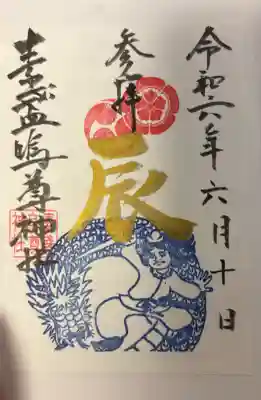 令和六年六月十日
参拝
辰
素盞嗚尊神社